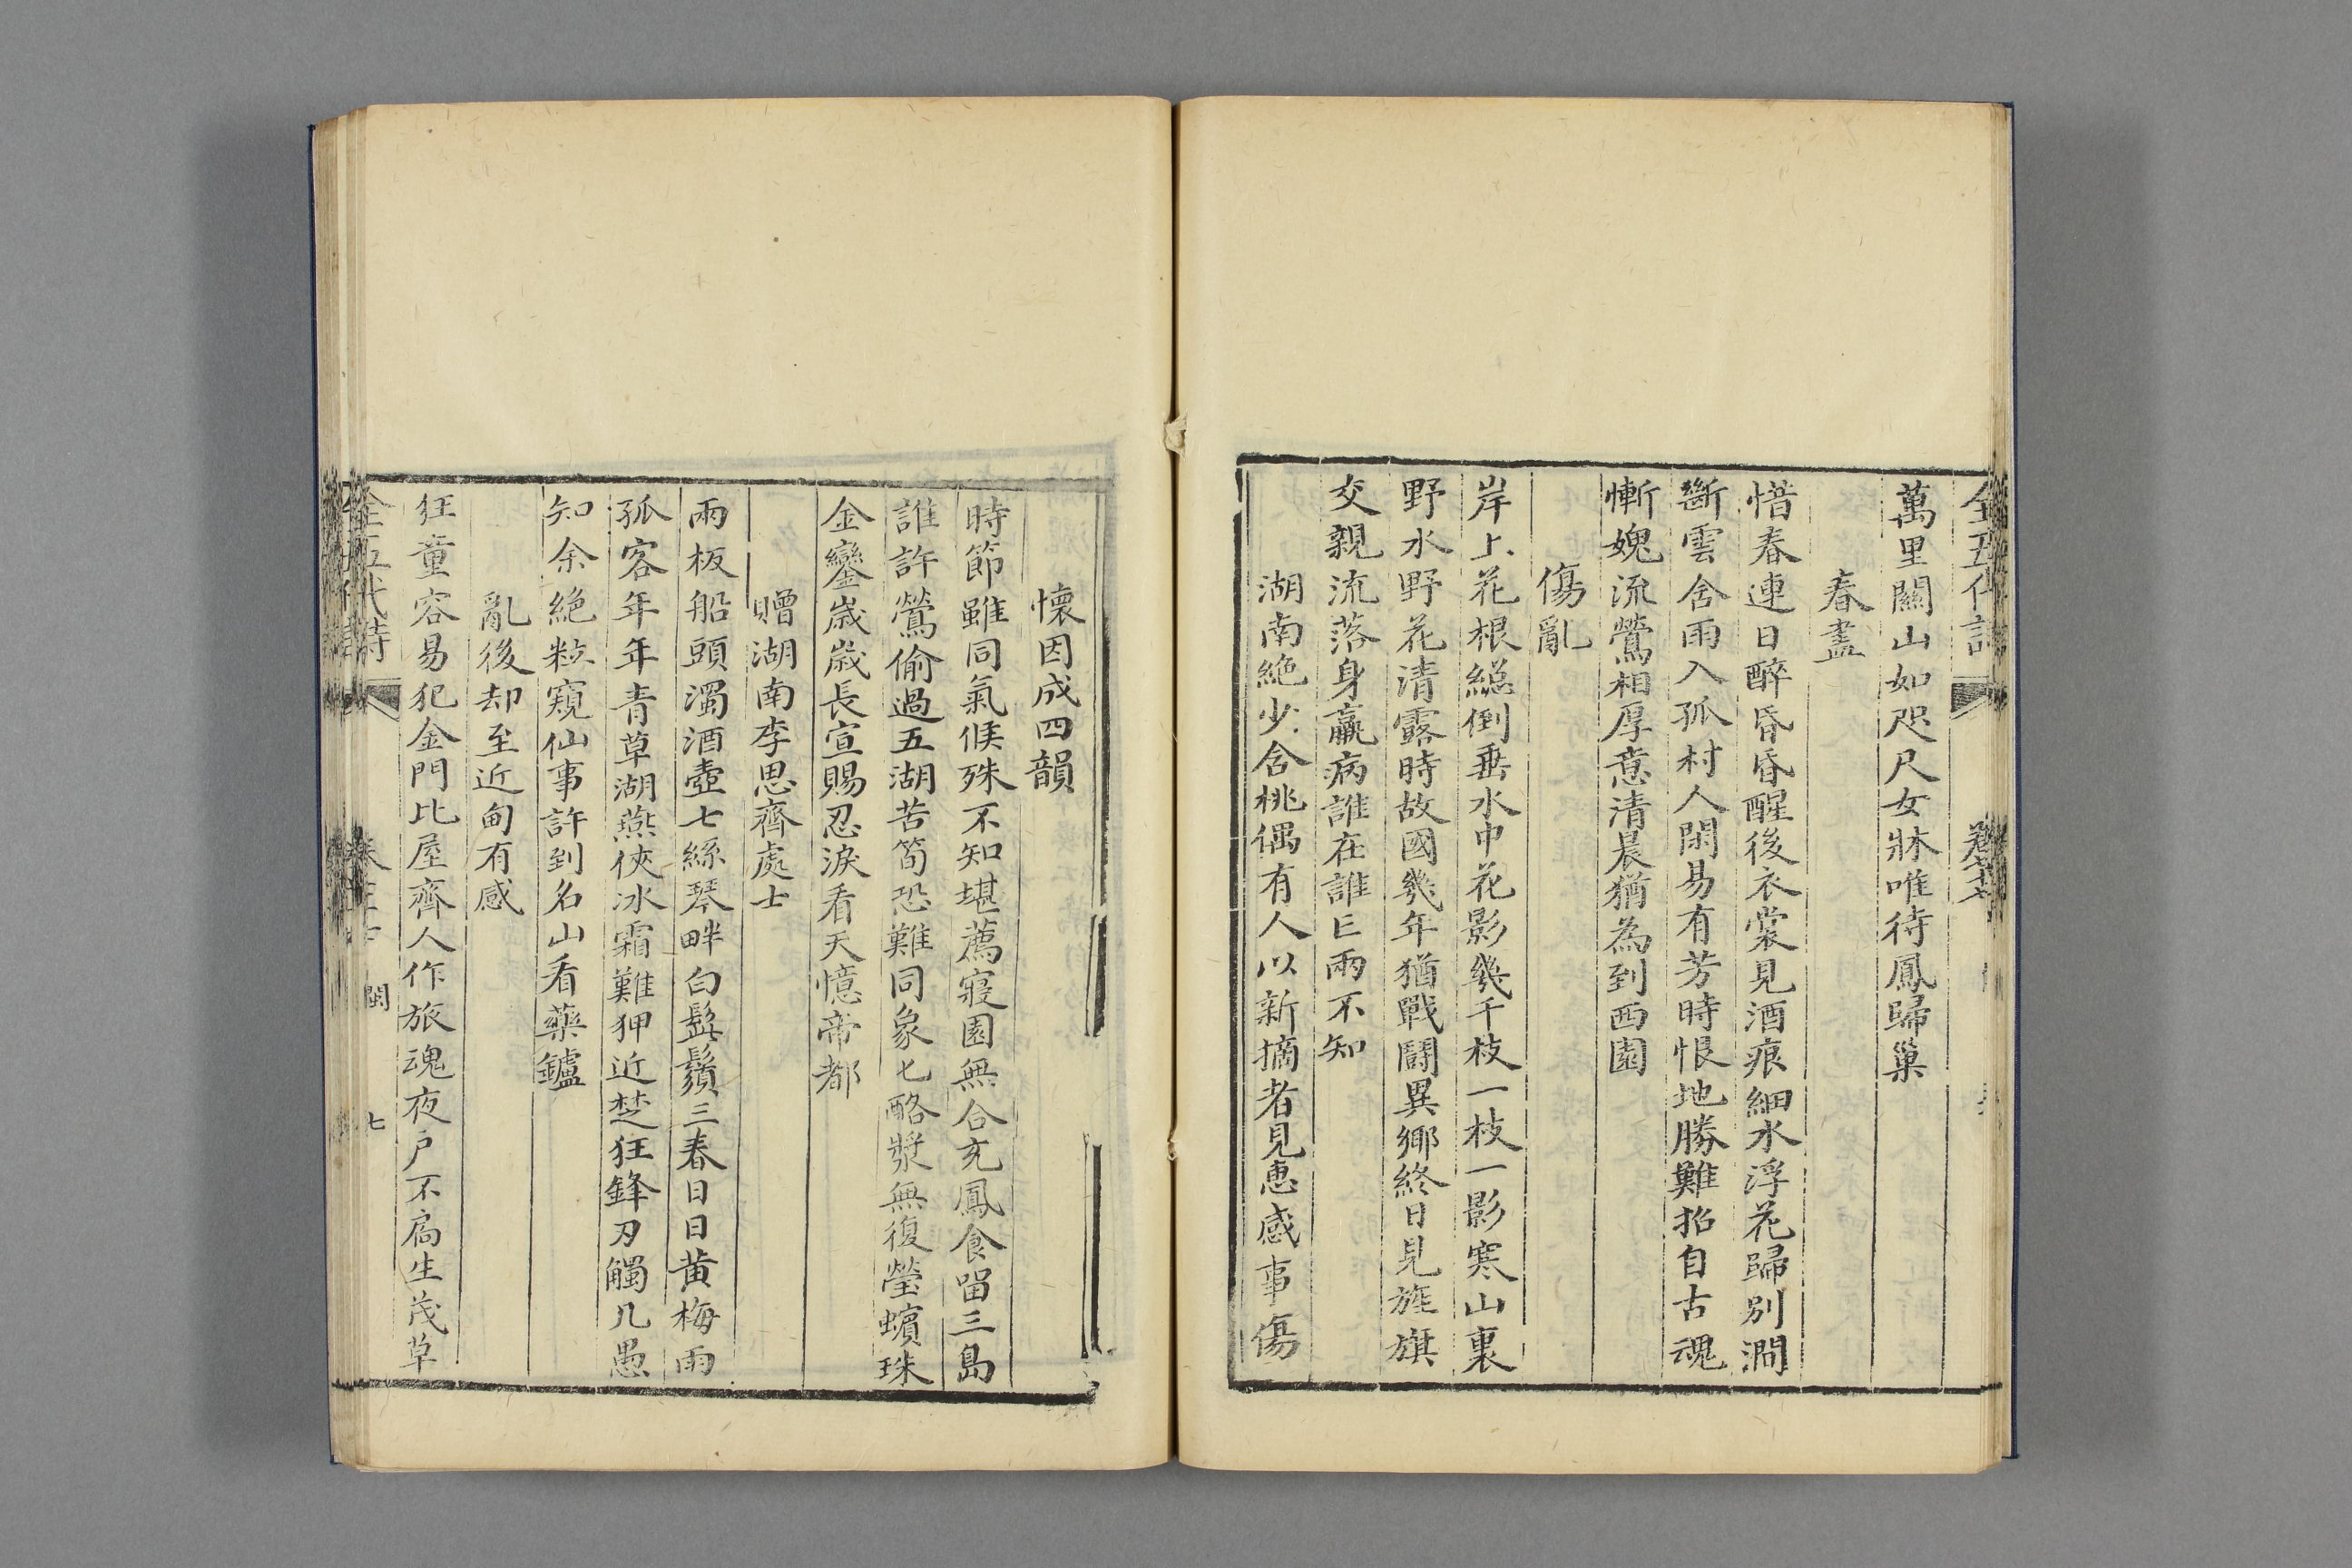 萬里關山如咫尺女牀唯待鳳歸巢
春盡
惜春連日醉昏昏醒後衣裳見酒痕細水浮花歸別澗
斷雲含雨入孤村人閑易有芳時恨地勝難招自古魂
慚媿流鶯相厚意清晨猶為到西園
傷亂
岸上花根緫倒垂水中花影幾千枝一枝一影寒山裏
野水野花清露時故國幾年猶戰鬭異鄉終日見旌旗
交親流落身羸病誰在誰亡兩不知
湖南絶少含桃偶有人以新摘者見惠感事傷
懷因成四韻
時節雖同氣候殊不知堪薦寢園無合充鳳食留三島
誰許鶯偷過五湖苦筍恐難同象匕酪漿無復瑩蠙珠
金鑾歲歲長宣賜忍淚看天憶帝都
贈湖南李思齊處士
兩板船頭濁酒壺七絲琴畔白髭鬚三春日日黃梅雨
孤客年年青草湖燕俠冰霜難狎近楚狂鋒刃觸凡愚
知余絶粒窺仙事許到名山看藥鑪
亂後却至近甸有感
狂童容易犯金門比屋齊人作旅魂夜戶不扃生茂草
全五代詩
閩
七